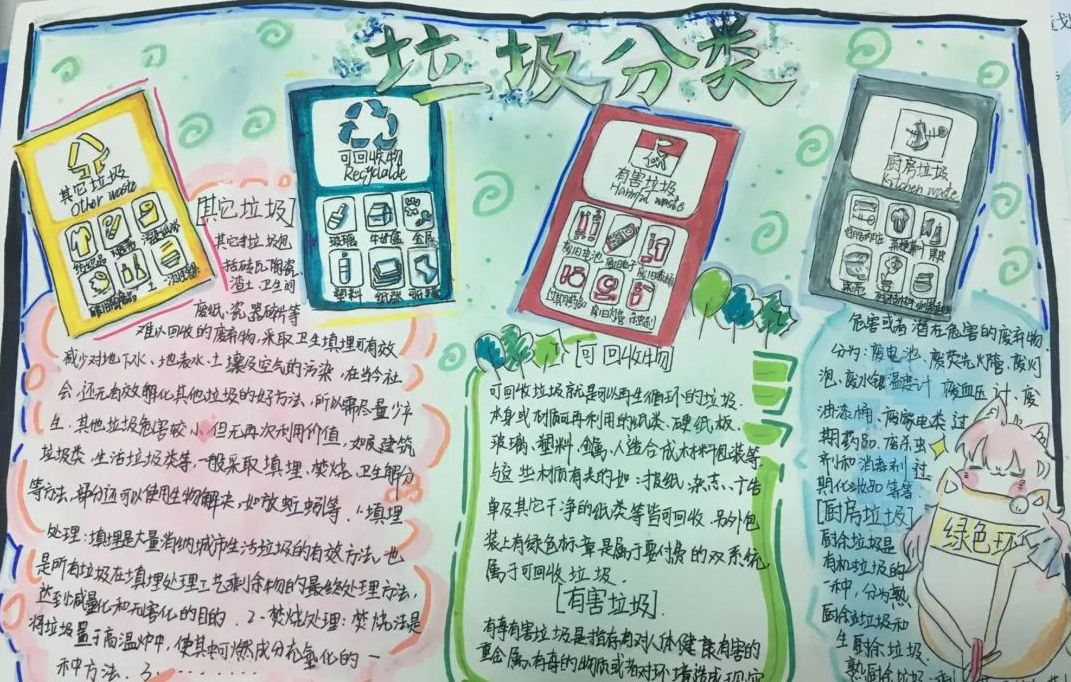 垃圾分类
其它垃圾
Other waste
可回收物
Recyclable
玻璃
牛奶盒
金属
塑料
纸张
有害垃圾
Harmful waste
厨房垃圾
Kitchen waste
果皮
[其它垃圾]
其它垃圾包
括砖瓦陶瓷
渣土卫生间
废纸、瓷器碎片等
难以回收的废弃物,采取卫生填埋可有效
减少对地下水、地表水、土壤及空气的污染,在当今社
会,还无有效解化其他垃圾的好方法,所以需尽量少产
生。其他垃圾危害较小,但无再次利用价值,如建筑
垃圾类,生活垃圾类等,一般采取填埋、焚烧、卫生解分
等方法,部分还可以使用生物解决,如放蚯蚓等。1、填埋
处理:填埋是大量消纳城市生活垃圾的有效方法,也
是所有垃圾在填埋处理工艺剩余物的最终处理方法,
达到减量化和无害化的目的。2、焚烧处理:焚烧法是
将垃圾置于高温炉中,使其可燃成分充分氧化的一
种方法。3、........
可回收物
可回收垃圾就是可以再生循环的垃圾.
本身或材质可再利用的纸类、硬纸板、
玻璃、塑料、金属、人造合成木材料包装等,
与这些材质有关的如:报纸、杂志、广告
单及其它干净的纸类等皆可回收.另外包
装上有绿色标章是属于要付费的双系统
属于可回收垃圾.
[有害垃圾].
有毒有害垃圾是指存有对人体健康有害的
重金属,有毒的物质或者对环境造成现实
危害或者潜在危害的废弃物
分为:废电池、废荧光灯管、废灯
泡、废水银温度计、废血压计、废
油漆桶、废家电类、过
期药品、废杀虫
剂和消毒剂、过
期化妆品等等.
[厨房垃圾]
厨余垃圾是
有机垃圾的
一种,分为熟
厨余垃圾和
生厨余垃圾.
熟厨余垃圾
绿色环